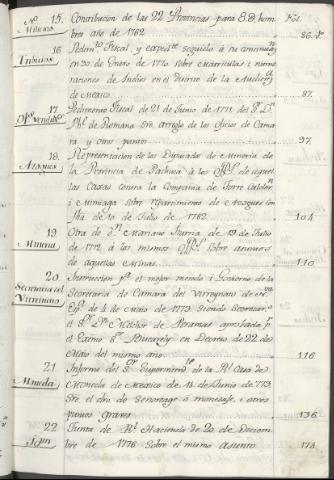 Nº 15. Contribucion de las 22 Provincias para 8@. hom- Fol.
Milicias bres año de 1762 86. Vº
16. Pedimto Fiscal, y expedte seguido á su continuan
Tributos en 30 de Enero de 1770 sobre Matriculas i nume-
raciones de Indios en el distrito de la Audiena
de Mexico 87.
17. Pedimento Fiscal de 21 de Junio de 1771. del Sr. Dn
Ofs. vendibs. Ph. de Romana sre. arreglo de los oficios de Cama-
ra y otros puntos 97.
18. Representacion de los Diputados de Mineria de
Azogues la Provincia de Pachuca à los Offs. de aquel-
las Caxas contra la Compania de Torre Calderon
i Muniaga sobre repartimiento de Azogues con
fha. de 10 de Julio de 1762. 104
19 Otra de Dn Mariano Iturria de 13 de Julio
Mineria de 1772 à los mismos Offs. sobre
de aquellas Minas. 110
20. Instruccion pa. el mejor metodo i Govierno de la
Secretaria del Secretaria de Camara del Virreynato de Na.
Virreinato Espa. de 4 de Maio de 1773. siendo Secretario
el Sr. Dn. Melchor de Peramas aprobada pr.
el Excmo Sr. Bucarely en Decreto de 22 de
Maio del mismo año. 116
21. Informe del Sr. Superintendte de la Rl. Casa de
Moneda Moneda de Mexico de 14 de Junio de 1773.
sre. el dro. de Señorage ó monedage, i otros
puntos graves 136
22 Junta de Rl. Hacienda de 20 de Diciem-
Idm. bre de 1776 sobre el mismo asunto 173.